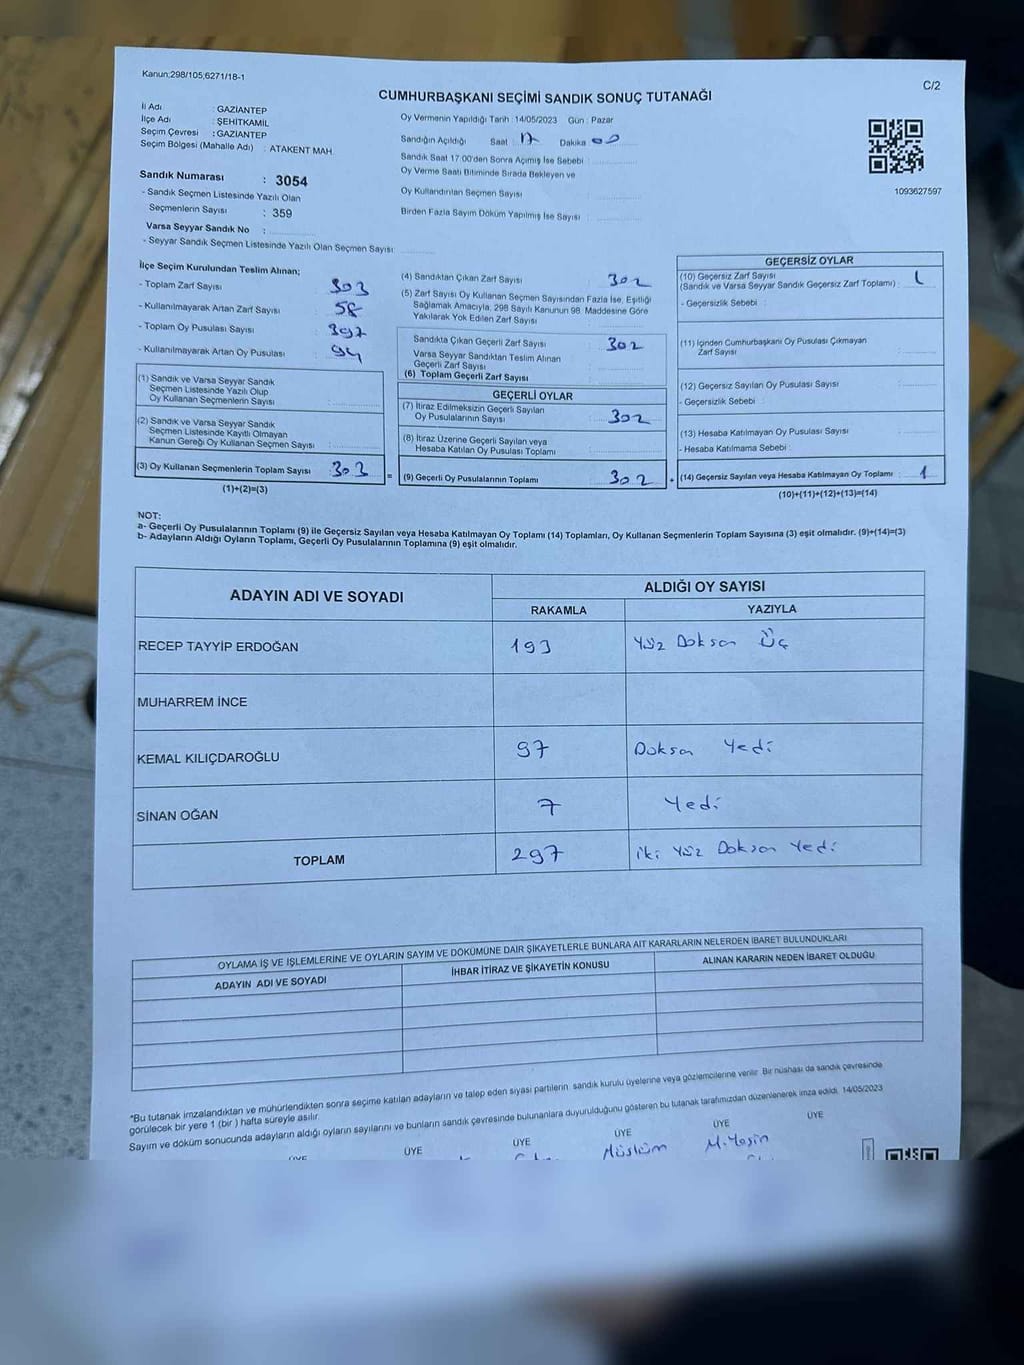 Kanun;298/105,6271/18-1
C/2
CUMHURBAŞKANI SEÇİMİ SANDIK SONUÇ TUTANAĞI
İl Adı : GAZİANTEP
İlçe Adı : ŞEHİTKAMİL
Seçim Çevresi : GAZİANTEP
Seçim Bölgesi (Mahalle Adı) : ATAKENT MAH.
Sandık Numarası : 3054
- Sandık Seçmen Listesinde Yazılı Olan
Seçmenlerin Sayısı : 359
Varsa Seyyar Sandık No :
- Seyyar Sandık Seçmen Listesinde Yazılı Olan Seçmen Sayısı:
Oy Vermenin Yapıldığı Tarih : 14/05/2023 Gün : Pazar
Sandığın Açıldığı Saat : 17 Dakika : 00
Sandık Saat 17:00'den Sonra Açımış İse Sebebi :
Oy Verme Saati Bitiminde Sırada Bekleyen ve
Oy Kullandırılan Seçmen Sayısı :
Birden Fazla Sayım Döküm Yapılmış İse Sayısı :
1093627597
İlçe Seçim Kurulundan Teslim Alınan;
- Toplam Zarf Sayısı : 303
- Kullanılmayarak Artan Zarf Sayısı : 58
- Toplam Oy Pusulası Sayısı : 397
- Kullanılmayarak Artan Oy Pusulası : 94
(1) Sandık ve Varsa Seyyar Sandık
Seçmen Listesinde Yazılı Olup
Oy Kullanan Seçmenlerin Sayısı :
(2) Sandık ve Varsa Seyyar Sandık
Seçmen Listesinde Kayıtlı Olmayan
Kanun Gereği Oy Kullanan Seçmen Sayısı :
(3) Oy Kullanan Seçmenlerin Toplam Sayısı : 303
(1)+(2)=(3)
(4) Sandıktan Çıkan Zarf Sayısı : 302
(5) Zarf Sayısı Oy Kullanan Seçmen Sayısından Fazla İse, Eşitliği
Sağlamak Amacıyla, 298 Sayılı Kanunun 98. Maddesine Göre
Yakılarak Yok Edilen Zarf Sayısı :
Sandıkta Çıkan Geçerli Zarf Sayısı : 302
Varsa Seyyar Sandıktan Teslim Alınan
Geçerli Zarf Sayısı :
(6) Toplam Geçerli Zarf Sayısı :
GEÇERLİ OYLAR
(7) İtiraz Edilmeksizin Geçerli Sayılan
Oy Pusulalarının Sayısı : 302
(8) İtiraz Üzerine Geçerli Sayılan veya
Hesaba Katılan Oy Pusulası Toplamı :
= (9) Geçerli Oy Pusulalarının Toplamı : 302 +
GEÇERSİZ OYLAR
(10) Geçersiz Zarf Sayısı
(Sandık ve Varsa Seyyar Sandık Geçersiz Zarf Toplamı) : 1
- Geçersizlik Sebebi :
(11) İçinden Cumhurbaşkanı Oy Pusulası Çıkmayan
Zarf Sayısı :
(12) Geçersiz Sayılan Oy Pusulası Sayısı :
- Geçersizlik Sebebi :
(13) Hesaba Katılmayan Oy Pusulası Sayısı :
- Hesaba Katılmama Sebebi :
(14) Geçersiz Sayılan veya Hesaba Katılmayan Oy Toplamı : 1
(10)+(11)+(12)+(13)=(14)
NOT:
a- Geçerli Oy Pusulalarının Toplamı (9) ile Geçersiz Sayılan veya Hesaba Katılmayan Oy Toplamı (14) Toplamları, Oy Kullanan Seçmenlerin Toplam Sayısına (3) eşit olmalıdır. (9)+(14)=(3)
b- Adayların Aldığı Oyların Toplamı, Geçerli Oy Pusulalarının Toplamına (9) eşit olmalıdır.
ADAYIN ADI VE SOYADI ALDIĞI OY SAYISI
RAKAMLA YAZIYLA
RECEP TAYYİP ERDOĞAN 193 Yüz Doksan Üç
MUHARREM İNCE
KEMAL KILIÇDAROĞLU 97 Doksan Yedi
SİNAN OĞAN 7 Yedi
TOPLAM 297 İki Yüz Doksan Yedi
OYLAMA İŞ VE İŞLEMLERİNE VE OYLARIN SAYIM VE DÖKÜMÜNE DAİR ŞİKAYETLERLE BUNLARA AİT KARARLARIN NELERDEN İBARET BULUNDUKLARI
ADAYIN ADI VE SOYADI İHBAR İTİRAZ VE ŞİKAYETİN KONUSU ALINAN KARARIN NEDEN İBARET OLDUĞU
*Bu tutanak imzalandıktan ve mühürlendikten sonra seçime katılan adayların ve talep eden siyasi partilerin sandık kurulu üyelerine veya gözlemcilerine verilir. Bir nüshası da sandık çevresinde
görülecek bir yere 1 (bir) hafta süreyle asılır.
Sayım ve döküm sonucunda adayların aldığı oyların sayılarını ve bunların sandık çevresinde bulunanlara duyurulduğunu gösteren bu tutanak tarafımızdan düzenlenerek imza edildi. 14/05/2023
ÜYE ÜYE ÜYE ÜYE ÜYE ÜYE
Müslüm M.Yasin